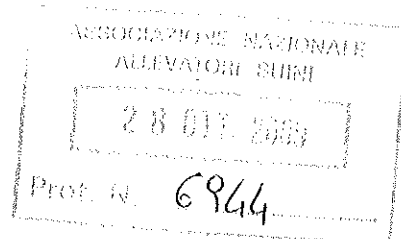 ASSOCIAZIONE NAZIONALE
ALLEVATORI SUINI
28 OTT.
Prot. N. 6944